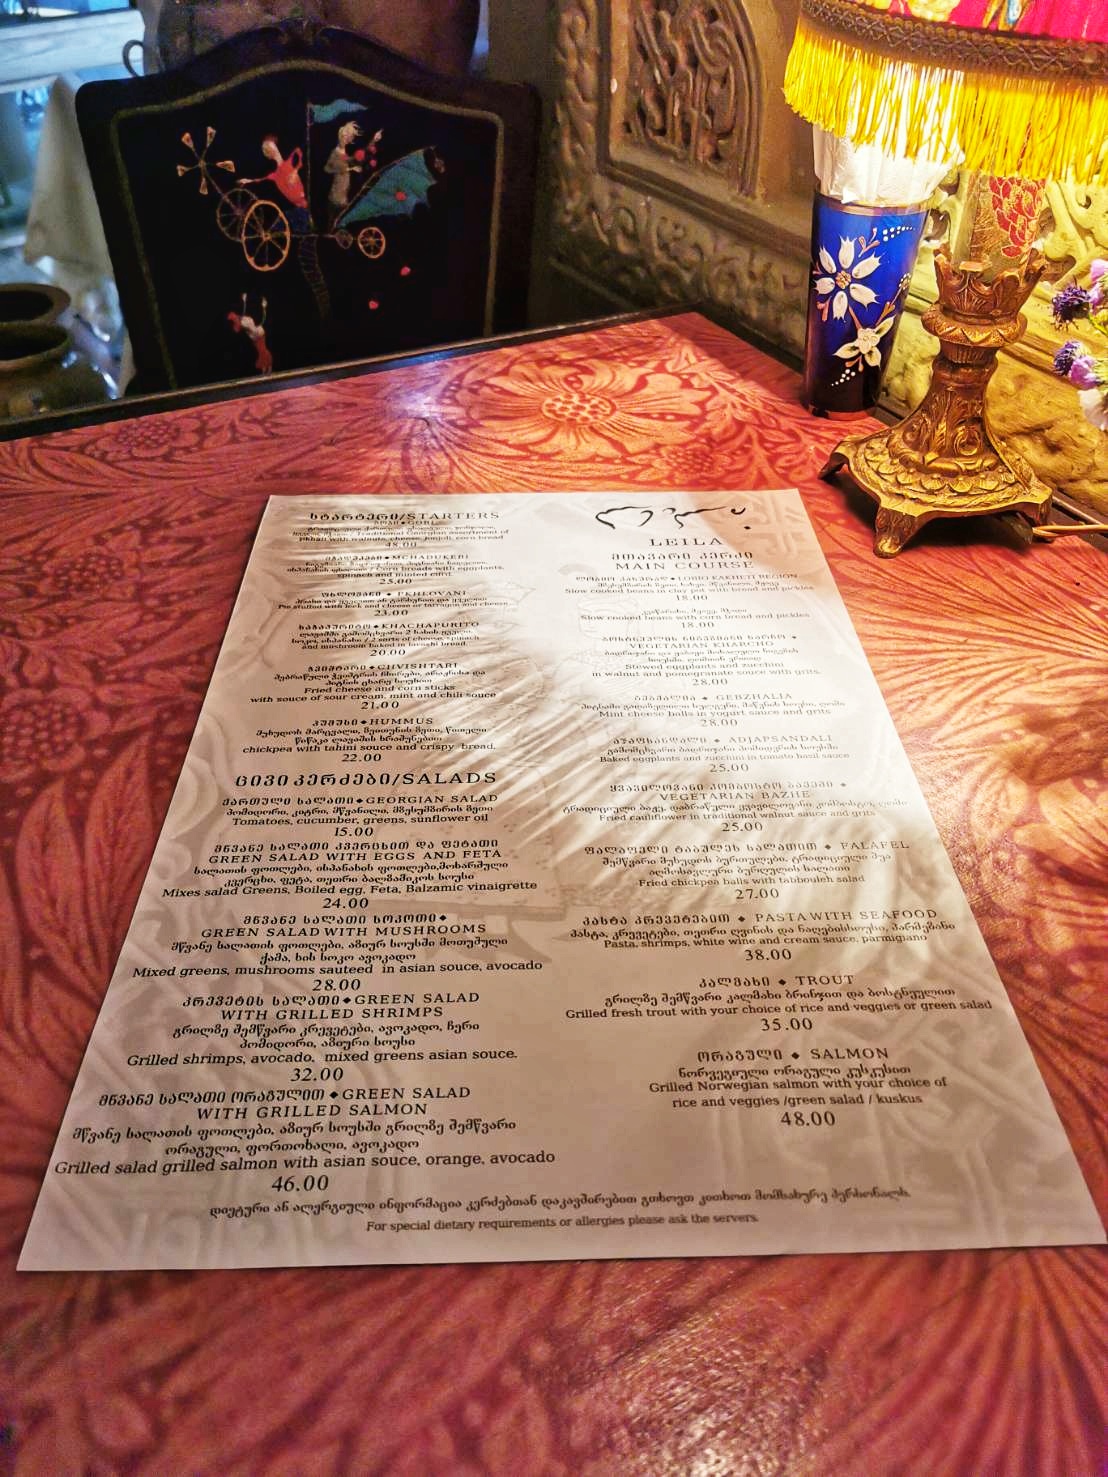 სტარტერი/STARTERS
გობი ◆ GOBI
/ Traditional Georgian assortment of
Pkhali with walnuts, cheese, jonjoli, corn bread
48.00
მჭადუკები ◆ MCHADUKEBI
/ Corn breads with eggplants,
spinach and minted curd.
25.00
ფხლოვანი ◆ PKHLOVANI
Pie stuffed with leek and cheese or tarragon and cheese.
23.00
ხაჭაპურიტო ◆ KHACHAPURITO
ლავაშში გამომცხვარი 2 სახის ყველი,
სოკო, ისპანახი / 2 sorts of cheese, spinach
and mushroom baked in lavashi bread.
20.00
ჭვიშტარი ◆ CHVISHTARI
შებრაწული ჭვიშტრის ჩხირები, არაჟნისა და
პიტნის ცხარე სოუსით
Fried cheese and corn sticks
with souce of sour cream, mint and chili souce
21.00
ჰუმუსი ◆ HUMMUS
მუხუდოს მარცვალი, ზეითუნის ზეთი, წითელი
წიწაკა ლავაშის ხრაშუნებით
chickpea with tahini souce and crispy bread.
22.00
ცივი კერძები/SALADS
ქართული სალათი ◆ GEORGIAN SALAD
პომიდორი, კიტრი, მწვანილი, მზესუმზირის ზეთი
Tomatoes, cucumber, greens, sunflower oil
15.00
მწვანე სალათი კვერცხით და ფეტათი
GREEN SALAD WITH EGGS AND FETA
სალათის ფოთლები, ისპანახის ფოთლები, მოხარშული
კვერცხი, ფეტა, თეთრი ბალზამიკოს სოუსი
Mixes salad Greens, Boiled egg, Feta, Balzamic vinaigrette
24.00
მწვანე სალათი სოკოთი ◆
GREEN SALAD WITH MUSHROOMS
მწვანე სალათის ფოთლები, აზიურ სოუსში მოთუშული
ქამა, ხის სოკო ავოკადო
Mixed greens, mushrooms sauteed in asian souce, avocado
28.00
კრევეტის სალათი ◆ GREEN SALAD
WITH GRILLED SHRIMPS
გრილზე შემწვარი კრევეტები, ავოკადო, ჩერი
პომიდორი, აზიური სოუსი
Grilled shrimps, avocado, mixed greens asian souce.
32.00
მწვანე სალათი ორაგულით ◆ GREEN SALAD
WITH GRILLED SALMON
მწვანე სალათის ფოთლები, აზიურ სოუსში გრილზე შემწვარი
ორაგული, ფორთოხალი, ავოკადო
Grilled salad grilled salmon with asian souce, orange, avocado
46.00
ლეილა
LEILA
მთავარი კერძი
MAIN COURSE
ლობიო კახურად ◆ LOBIO KAKHETI REGION
Slow cooked beans in clay pot with bread and pickles
18.00
Slow cooked beans with corn bread and pickles
18.00
ბოსტნეულის ნიგვზიანი ხარჩო ◆
VEGETARIAN KHARCHO
Stewed eggplants and zucchini
in walnut and pomegranate souce with grits.
28.00
გებჟალია ◆ GEBZHALIA
Mint cheese balls in yogurt sauce and grits
28.00
აჯაფსანდალი ◆ ADJAPSANDALI
გამომცხვარი ბადრიჯანი პომიდვრის სოუსში
Baked eggplants and zucchini in tomato basil sauce
25.00
ყვავილოვანი კომბოსტო ბაჟეში ◆
VEGETARIAN BAZHE
Fried cauliflower in traditional walnut sauce and grits
25.00
ფალაფელი ტაბულეს სალათით ◆ FALAFEL
შემწვარი მუხუდოს ბურთულები, ტრადიციული შუა
აღმოსავლური ბურღულის სალათი
Fried chickpea balls with tabbouleh salad
27.00
პასტა კრევეტებით ◆ PASTA WITH SEAFOOD
პასტა, კრევეტები, თეთრი ღვინის და ნაღებისსოუსი, პარმეზანი
Pasta, shrimps, white wine and cream sauce, parmigiano
38.00
კალმახი ◆ TROUT
გრილზე შემწვარი კალმახი ბრინჯით და ბოსტნეულით
Grilled fresh trout with your choice of rice and veggies or green salad
35.00
ორაგული ◆ SALMON
ნორვეგიული ორაგული კუსკუსით
Grilled Norwegian salmon with your choice of
rice and veggies /green salad / kuskus
48.00
დიეტური ან ალერგიული ინფორმაცია კერძებთან დაკავშირებით გთხოვთ კითხოთ მომსახურე პერსონალს.
For special dietary requirements or allergies please ask the servers.